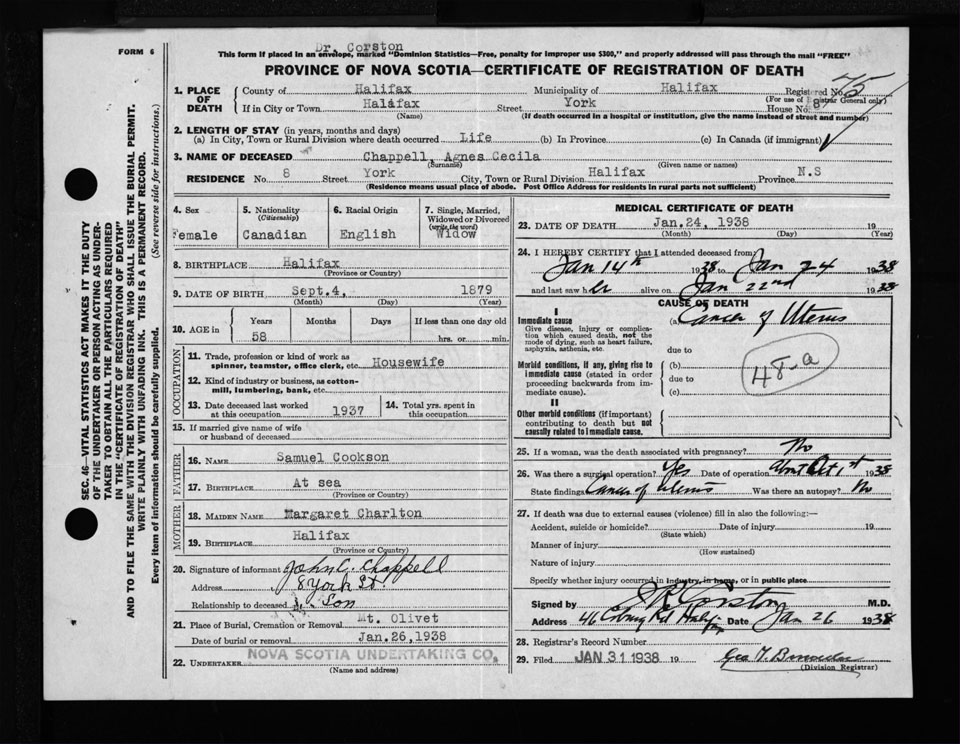 FORM 6
Dr. Corston
This form if placed in an envelope, marked "Dominion Statistics—Free, penalty for improper use $300," and properly addressed will pass through the mail "FREE"
PROVINCE OF NOVA SCOTIA—CERTIFICATE OF REGISTRATION OF DEATH
1. PLACE OF DEATH
County of Halifax Municipality of Halifax Registered No. 75
(For use of Registrar General only)
If in City or Town Halifax Street York House No. 8
(Name) (If death occurred in a hospital or institution, give the name instead of street and number)
2. LENGTH OF STAY (in years, months and days)
(a) In City, Town or Rural Division where death occurred Life (b) In Province (c) In Canada (if immigrant)
3. NAME OF DECEASED Chappell, Agnes Cecila
(Surname) (Given name or names)
RESIDENCE No. 8 Street York City, Town or Rural Division Halifax Province N.S
(Residence means usual place of abode. Post Office Address for residents in rural parts not sufficient)
4. Sex Female
5. Nationality (Citizenship) Canadian
6. Racial Origin English
7. Single, Married, Widowed or Divorced (write the word) Widow
8. BIRTHPLACE Halifax
(Province or Country)
9. DATE OF BIRTH Sept.4, 1879
(Month) (Day) (Year)
10. AGE in Years Months Days If less than one day old
58 hrs. or min.
OCCUPATION
11. Trade, profession or kind of work as spinner, teamster, office clerk, etc. Housewife
12. Kind of industry or business, as cotton-mill, lumbering, bank, etc.
13. Date deceased last worked at this occupation 1937
14. Total yrs. spent in this occupation
15. If married give name of wife or husband of deceased
FATHER
16. NAME Samuel Cookson
17. BIRTHPLACE At sea
(Province or Country)
MOTHER
18. MAIDEN NAME Margaret Charlton
19. BIRTHPLACE Halifax
(Province or Country)
20. Signature of informant John C. Chappell
Address 8 York St.
Relationship to deceased Son
21. Place of Burial, Cremation or Removal Mt. Olivet
Date of burial or removal Jan.26,1938
22. UNDERTAKER NOVA SCOTIA UNDERTAKING CO.
(Name and address)
MEDICAL CERTIFICATE OF DEATH
23. DATE OF DEATH Jan.24, 1938
(Month) (Day) (Year)
24. I HEREBY CERTIFY that I attended deceased from
Jan 14th 1938 to Jan 24 1938
and last saw her alive on Jan 22nd 1938
CAUSE OF DEATH
I
Immediate cause (a) Cancer of Uterus
Give disease, injury or complication which caused death, not the mode of dying, such as heart failure, asphyxia, asthenia, etc.
due to
Morbid conditions, if any, giving rise to immediate cause (stated in order proceeding backwards from immediate cause).
(b)
due to
(c)
48-a
II
Other morbid conditions (if important) contributing to death but not causally related to immediate cause.
25. If a woman, was the death associated with pregnancy? No
26. Was there a surgical operation? Yes Date of operation Oct 1st 1938
State findings Cancer of Uterus Was there an autopsy? No
27. If death was due to external causes (violence) fill in also the following:—
Accident, suicide or homicide? Date of injury 19
(State which)
Manner of injury
(How sustained)
Nature of injury
Specify whether injury occurred in industry, in home, or in public place
Signed by Corston M.D.
Address 46 Rd Halifax Date Jan 26 1938
28. Registrar's Record Number
29. Filed JAN 31 1938 19
(Division Registrar)
SEC. 46—VITAL STATISTICS ACT MAKES IT THE DUTY
OF THE UNDERTAKER OR PERSON ACTING AS UNDER-
TAKER TO OBTAIN ALL THE PARTICULARS REQUIRED
IN THE "CERTIFICATE OF REGISTRATION OF DEATH"
AND TO FILE THE SAME WITH THE DIVISION REGISTRAR WHO SHALL ISSUE THE BURIAL PERMIT.
WRITE PLAINLY WITH UNFADING INK. THIS IS A PERMANENT RECORD.
Every item of information should be carefully supplied. (See reverse side for instructions.)